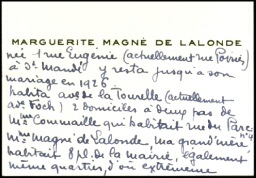 MARGUERITE MAGNÉ DE LALONDE
née 1 rue Eugénie (actuellement rue Poirier)
à St Mandé y resta jusqu'à son
mariage en 1926
habita av. de la Tourelle (actuellement
av. Foch) 2 domiciles à deux pas de
Mme Commaille qui habitait rue du Parc
Mme Magné de Lalonde, ma grand'mère,
habitait 8 pl. de la mairie, également
même quartier, d'où extrêmeme